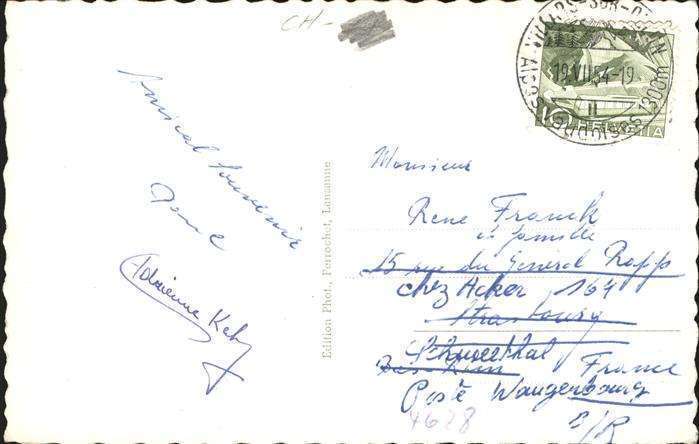 CH-
VILLARS-SUR-OLLON
19.VII.54-19
1300m
10 HELVETIA
Amical Souvenir
Adrienne
Edition Phot., Perrochet, Lausanne
Monsieur
René Franck
et famille
15 rue du Général Rapp
chez Acker 164
Strasbourg
Bas Rhin France
Poste Wangenbourg
4628
B/R